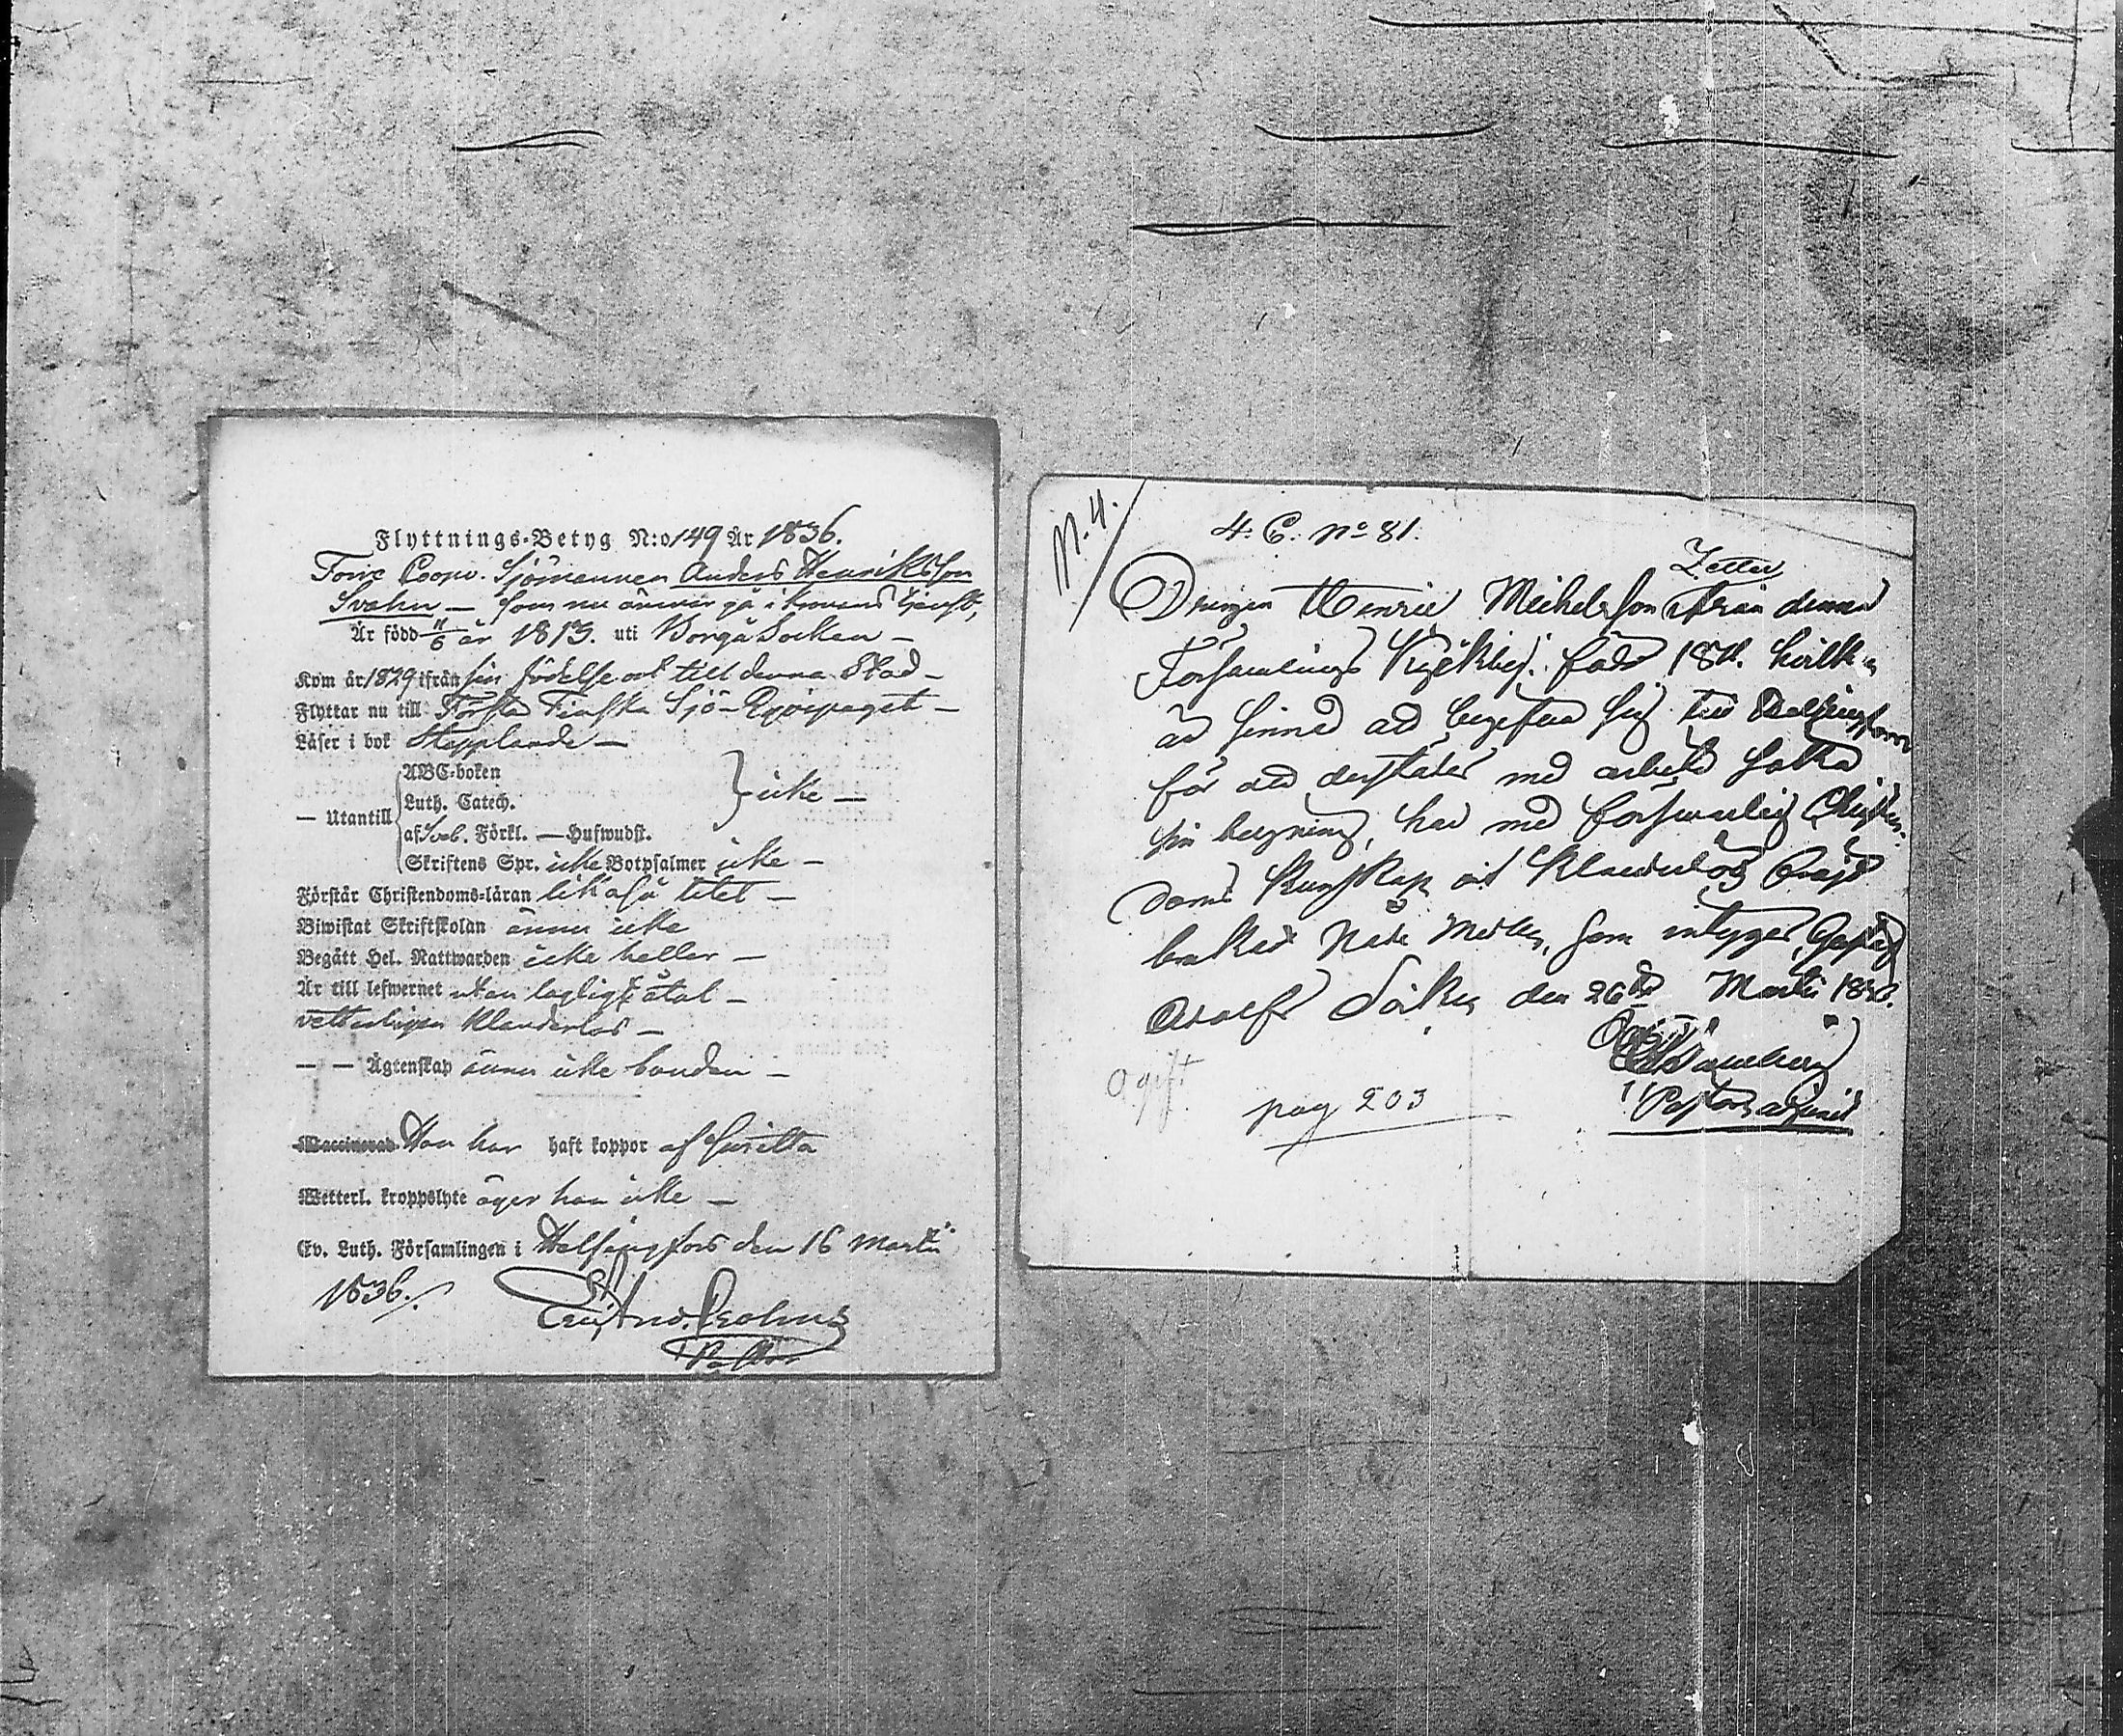 Flyttnings-Betyg N:o 149 År 1836.
Coopv. Sjömannen Anders Henriksson
Svahn — som nu ämnar gå i kronans tjenst,
Är född 11/6 år 1813. uti Borgå Socken —
Kom år 1829 ifrån sin födelseort till denna Stad —
Flyttar nu till Första Finska Sjö-Equipaget —
Läser i bok Stapplande —
— Utantill
ABC-boken
Luth. Catech.
af Sveb. Förkl. — Hufwudst.
icke —
Skriftens Spr. icke Botpsalmer icke —
Förstår Christendoms-läran likaså litet —
Biwistat Skriftskolan ännu icke
Begått Hel. Nattwarden icke heller —
Är till lefwernet utan lagligt åtal —
vetterligen klanderlös —
— — Ägtenskap ännu icke bunden —
Waccinerad Han har haft koppor af
Wetterl. kroppslyte äger han icke —
Ev. Luth. Församlingen i Helsingfors den 16 Martii
1836.
Pastor
N. 4.
4. C. No 81.
Zetter
Drengen Henric Michelsson från denna
Församlings född 18
är sinnad att begifva sig till Helsingfors
för att derstädes med arbete söka
sin bergning, har med försvarlig Christen-
doms kunskap och klanderlös
brukat Nåde Medlen, som intygar, Gustaf
Adolfs Socken den 26de Martii
Pastors adjunct
Ogift
pag 203